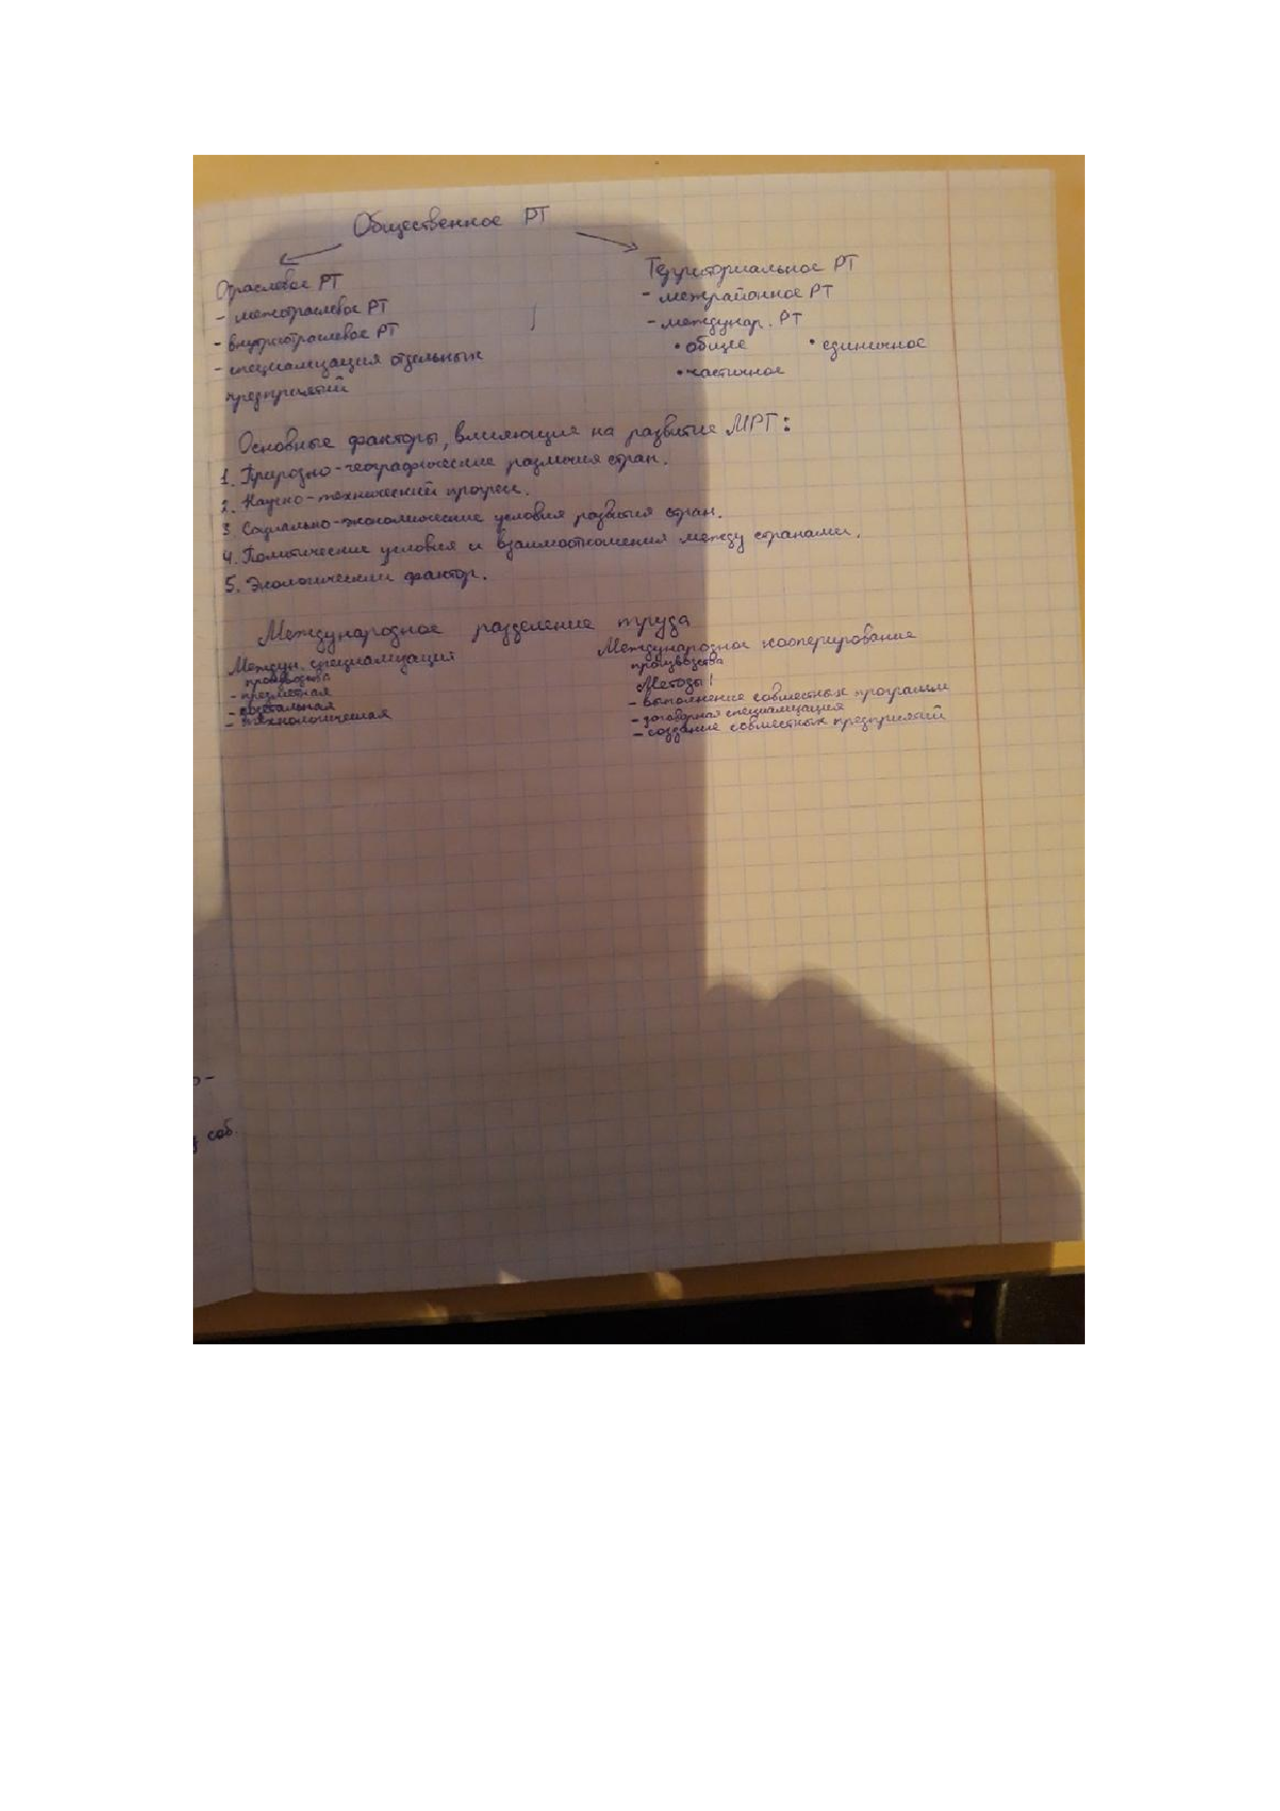 Общественное РТ
Отраслевое РТ
- межотраслевое РТ
- внутриотраслевое РТ
- специализация отдельных
предприятий
Территориальное РТ
- межрайонное РТ
- междунар. РТ
• общее • единичное
• частичное
Основные факторы, влияющие на развитие МРТ:
1. Природно-географические различия стран.
2. Научно-технический прогресс.
3 Социально-экономические условия развития стран.
4. Политические условия и взаимоотношения между странами.
5. Экологический фактор.
Международное разделение труда
Междун. специализация
производства
- предметная
- подетальная
- технологическая
Международное кооперирование
производства
Методы:
- выполнение совместных программ
- договорная специализация
- создание совместных предприятий
о-
соб.